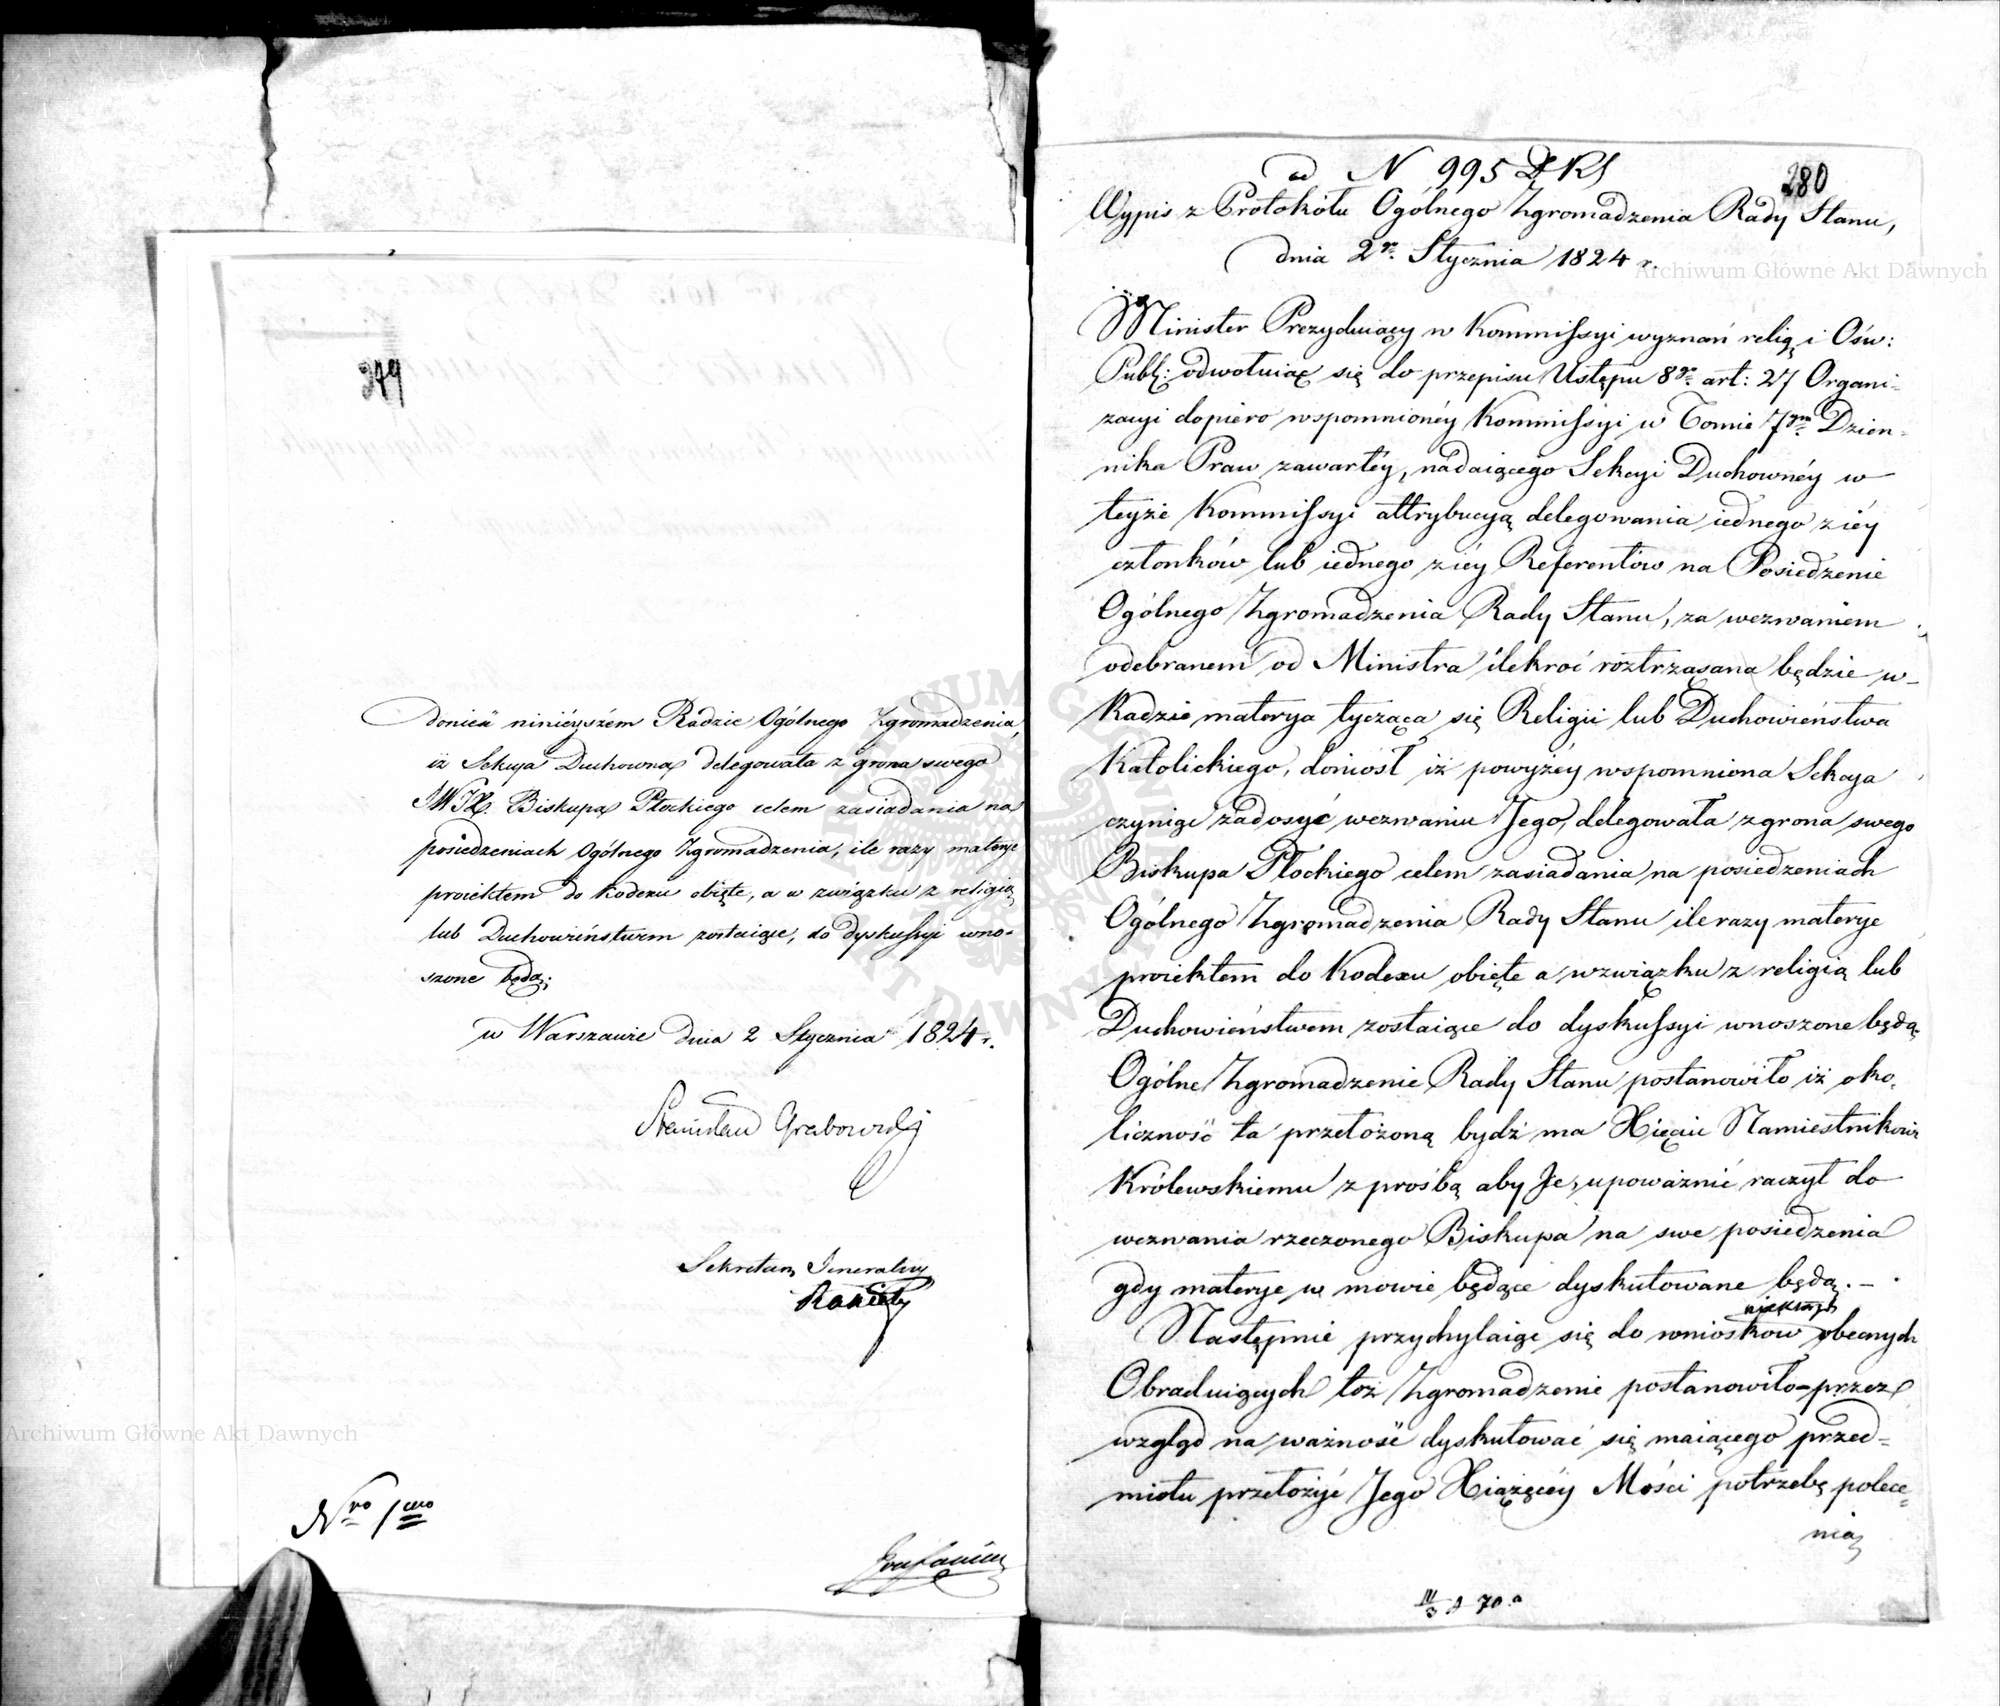 379
donieść ninieyszém Radzie Ogólnego Zgromadzenia,
iż Sekcya Duchowna delegowała z grona swego
JWJX. Biskupa Płockiego celem zasiadania na
posiedzeniach Ogólnego Zgromadzenia, ile razy materye
proiektem do Kodexu obięte, a w związku z religią
lub Duchowieństwem zostaiące, do dyskussyi wno-
szone będą;
w Warszawie dnia 2 Stycznia 1824 r.
Stanisław Grabowski
Sekretarz Jeneralny
Nro 1mo
ad N 995 DKS
280
Wypis z Protokółu Ogólnego Zgromadzenia Rady Stanu,
dnia 2go Stycznia 1824 r.
Minister Prezyduiący w Kommissyi wyznań relig i Ośw:
Publ: odwołuiąc się do przepisu Ustępu 8go art: 27 Organi-
zacyi dopiero wspomnionéy Kommissyi w Tomie 7ym Dzien-
nika Praw zawartéy, nadaiącego Sekcyi Duchownéy w
teyże Kommissyi attrybucyą delegowania iednego z iéy
członków lub iednego z iéy Referentów na Posiedzenie
Ogólnego Zgromadzenia Rady Stanu, za wezwaniem
odebranem od Ministra ilekroć roztrząsana będzie w-
Radzie materya tycząca się Religii lub Duchowieństwa
Katolickiego, doniosł iż powyżéy wspomniona Sekcya
czyniąc zadosyć wezwaniu Jego, delegowała z grona swego
Biskupa Płockiego celem zasiadania na posiedzeniach
Ogólnego Zgromadzenia Rady Stanu ile razy materye
proiektem do Kodexu obięte a w związku z religią lub
Duchowieństwem zostaiące do dyskussyi wnoszone będą.
Ogólne Zgromadzenie Rady Stanu postanowiło iż oko-
liczność ta przełożoną bydź ma Xięciu Namiestnikowi
Królewskiemu z prośbą aby Je, upoważnić raczył do
wezwania rzeczonego Biskupa na swe posiedzenia
gdy materye w mowie będące dyskutowane będą. -
niektórych
Następnie przychylaiąc się do wniosków obecnych
Obraduiących toż Zgromadzenie postanowiło-przez
wzgląd na ważność dyskutować się maiącego przed-
miotu przełożyć Jego Xiążęcéy Mości potrzebę polece-
nia
III/3 A 70.a
Archiwum Główne Akt Dawnych
Archiwum Główne Akt Dawnych
ARCHIWUM GŁÓWNE AKT DAWNYCH